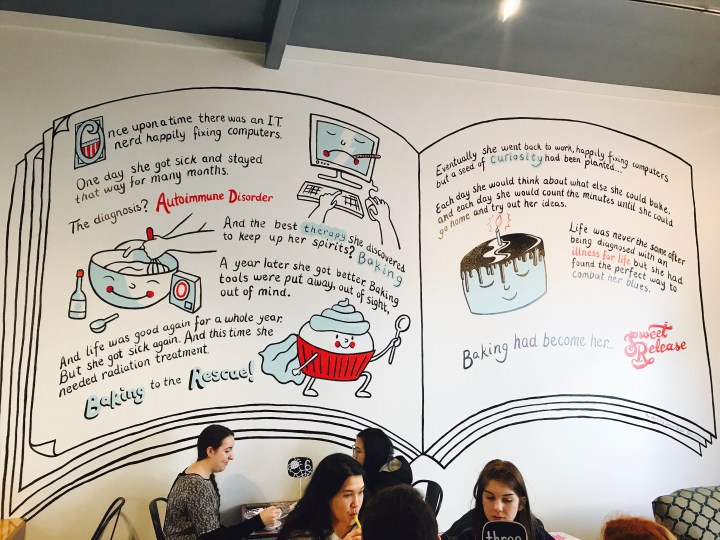 Once upon a time there was an I.T.
nerd happily fixing computers.
One day she got sick and stayed
that way for many months.
The diagnosis? Autoimmune Disorder
And the best therapy she discovered
to keep up her spirits? Baking
A year later she got better. Baking
tools were put away, out of sight,
out of mind.
And life was good again for a whole year.
But she got sick again. And this time she
needed radiation treatment.
Baking to the Rescue!
Eventually she went back to work, happily fixing computers
but a seed of curiosity had been planted...
Each day she would think about what else she could bake,
and each day she would count the minutes until she could
go home and try out her ideas.
Life was never the same after
being diagnosed with an
illness for life but she had
found the perfect way to
combat her blues.
Baking had become her...
Sweet
Release
6
three